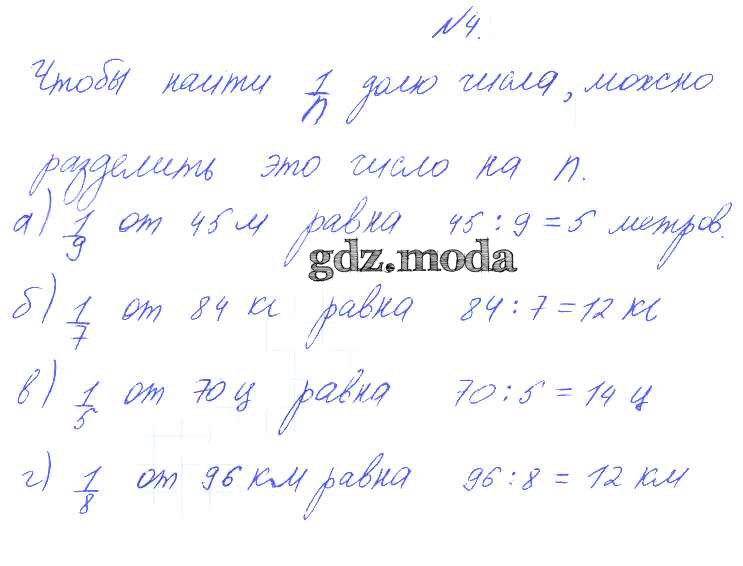 №4.
Чтобы найти 1/n долю числа, можно
разделить это число на n.
а) 1/9 от 45 м равна 45 : 9 = 5 метров.
gdz.moda
б) 1/7 от 84 кг равна 84 : 7 = 12 кг
в) 1/5 от 70 ц равна 70 : 5 = 14 ц
г) 1/8 от 96 км равна 96 : 8 = 12 км